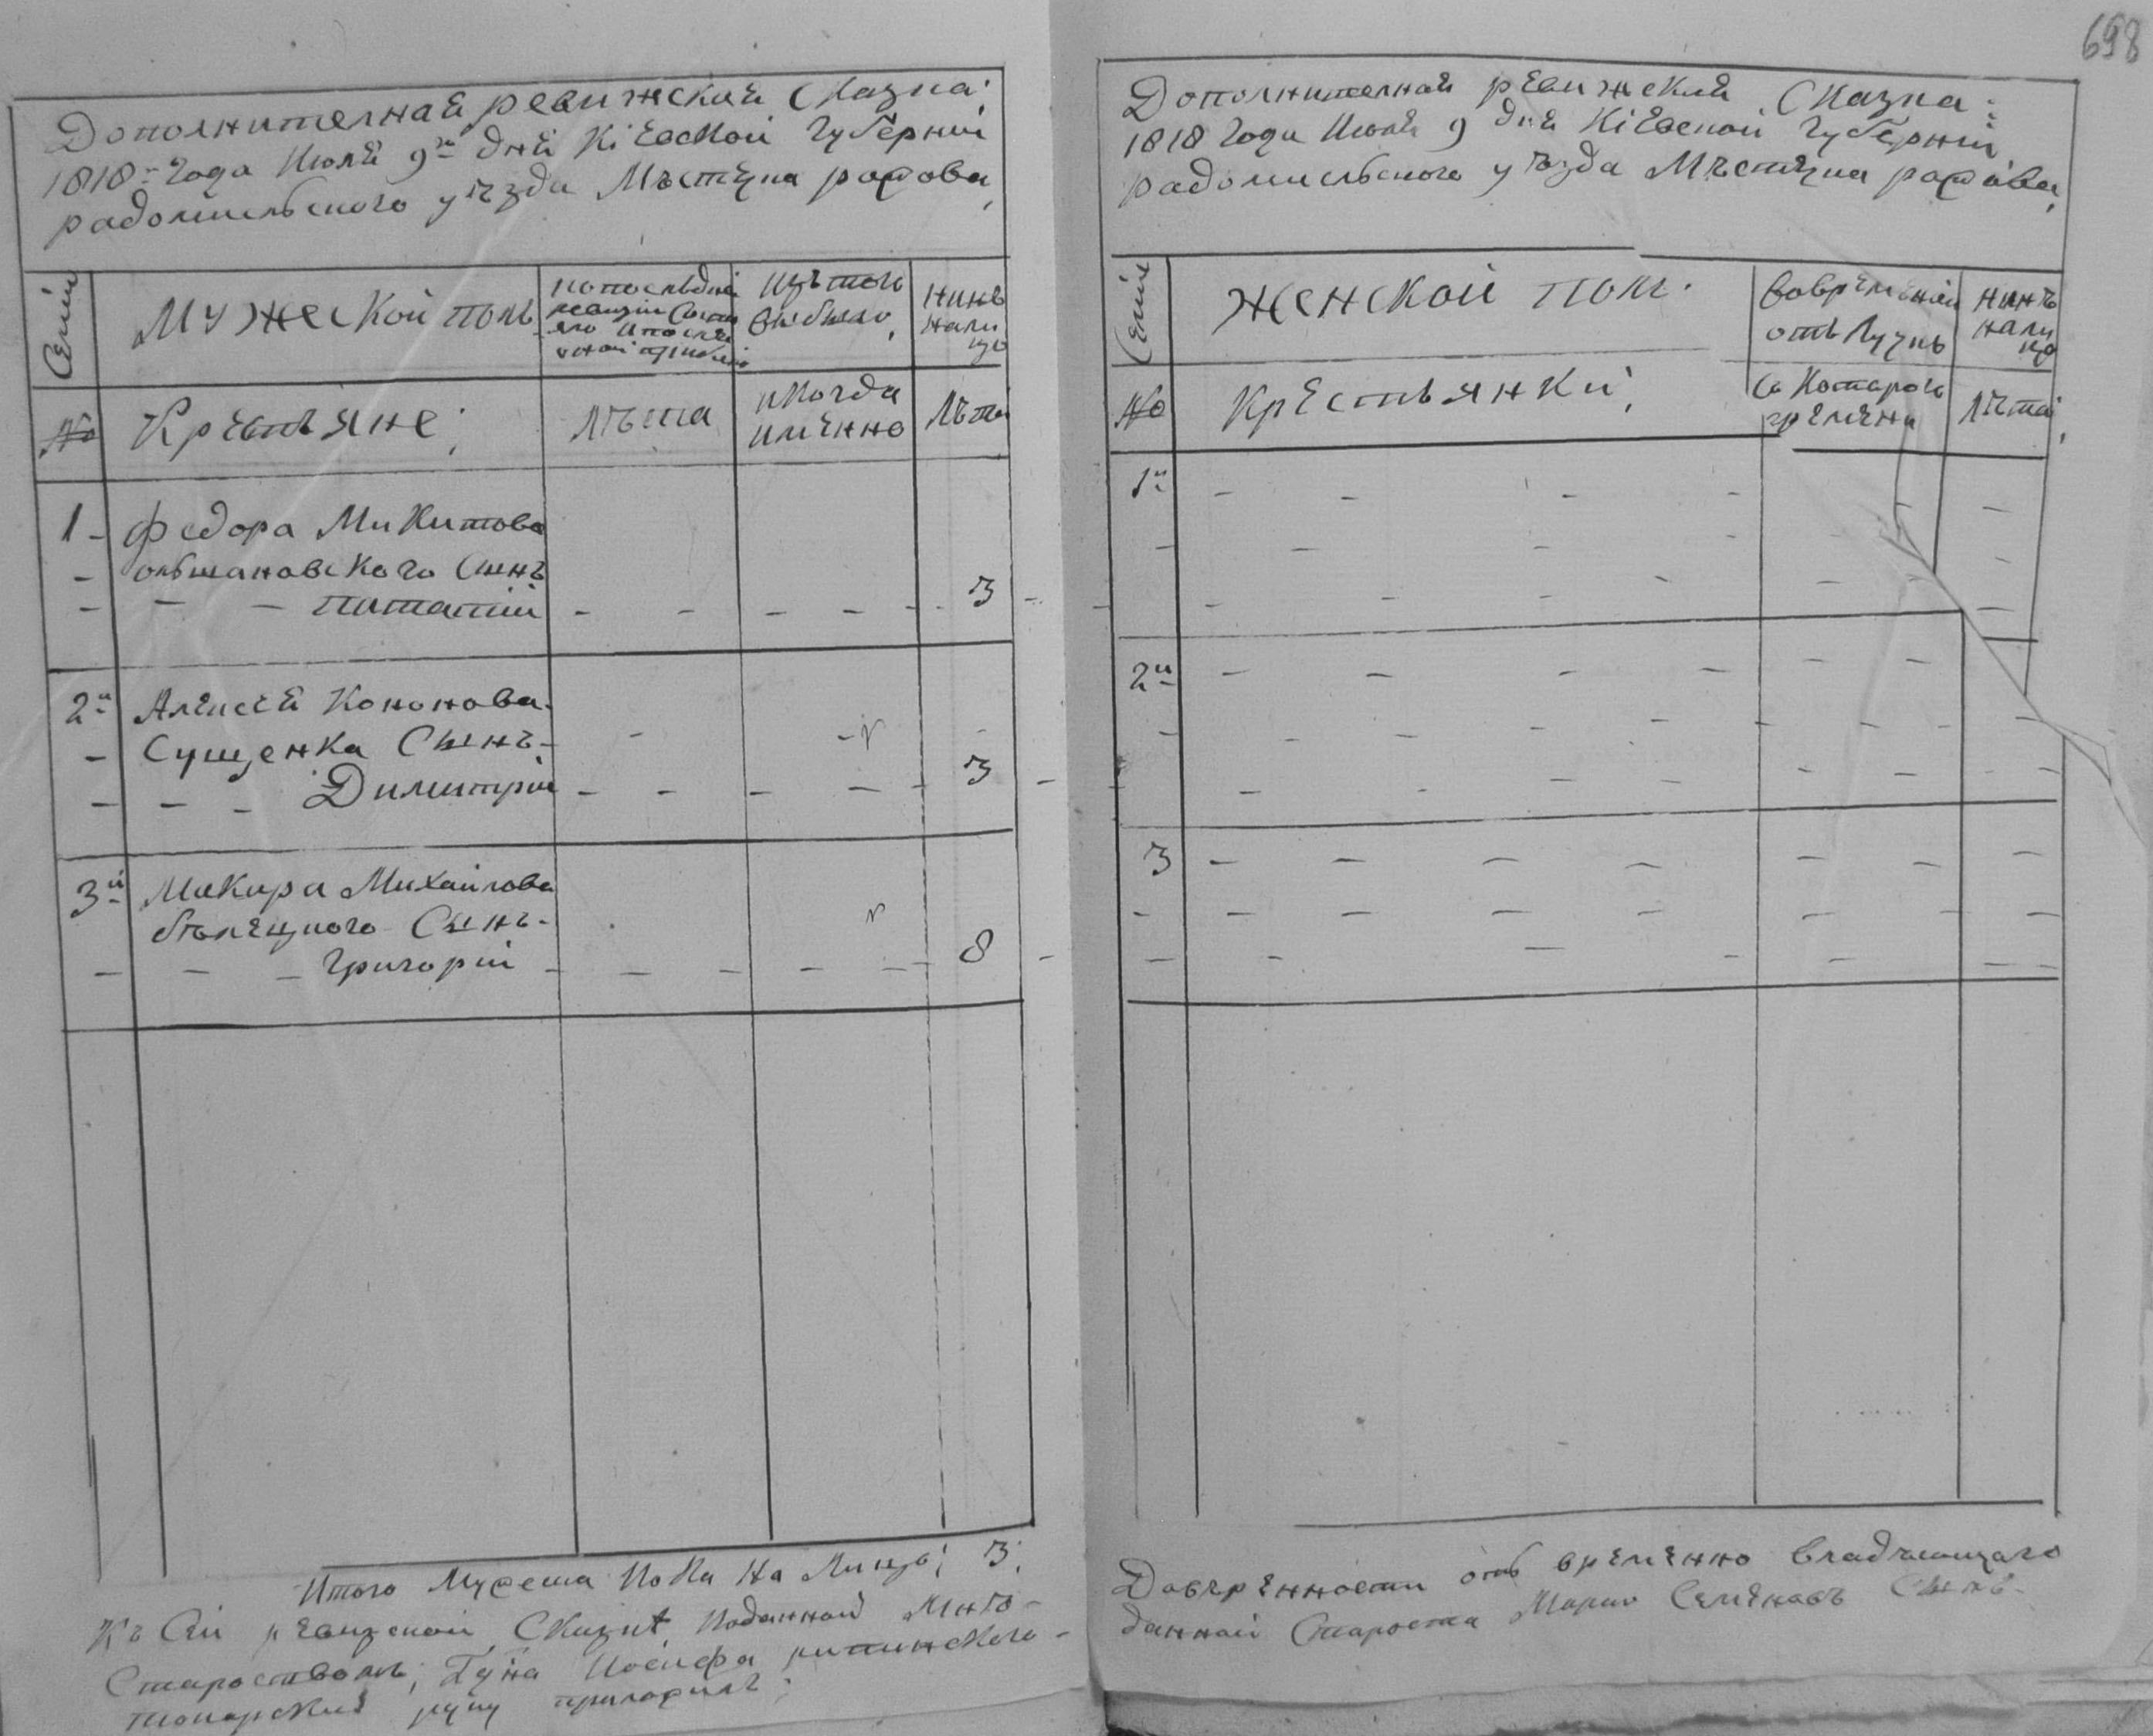 698
Дополнителная ревижская Сказка:
1818-го года Июля 9го дня Кіевской Губерніи
радомисльского уѣзда Мѣстечка рожова,
Семіи
Мужеской полъ
попослѣдней
ревизіи Состо
яло
Изъ того
выбыло,
Нинѣ
нали
цо
№
Крестьяне;
Лѣта
Когда
имѣнно
Лѣта
1 - федора Микитова
- ольшановского Сынъ
- - - потапій - - - - - 3 -
2й Алексѣя Кононова
- Сущенка Сынъ -
- - - Димитрій - - - - - 3 -
3й Макара Михаилова
бѣлецкого Сынъ -
- - - Григорій - - - - - 8 -
Итого Мужеска пола На Лицо; 3;
Къ Сей ревизской Сказкѣ поданной
Староствомъ, Іосифа
руку приложилъ;
Дополнителная ревижская Сказка:
1818 Года Июля 9 дня Кіевской Губерніи
радомисльского уѣзда Мѣстечка рожова,
Семіи
Женской полъ.
Вовременной
отлучкѣ
Нинѣ
нали
цо
№
Крестьянки;
Съ Котарого
времѣни
Лѣта;
1й - - - - - -
- - - - - -
- - - - - -
2й - - - - - -
- - - - - - -
- - - - - -
3 - - - - - - -
- - - - - - - -
- - - - - - -
Довѣренности отъ времѣнно владѣющаго
данной Староста Марко Семѣновъ Сынъ -